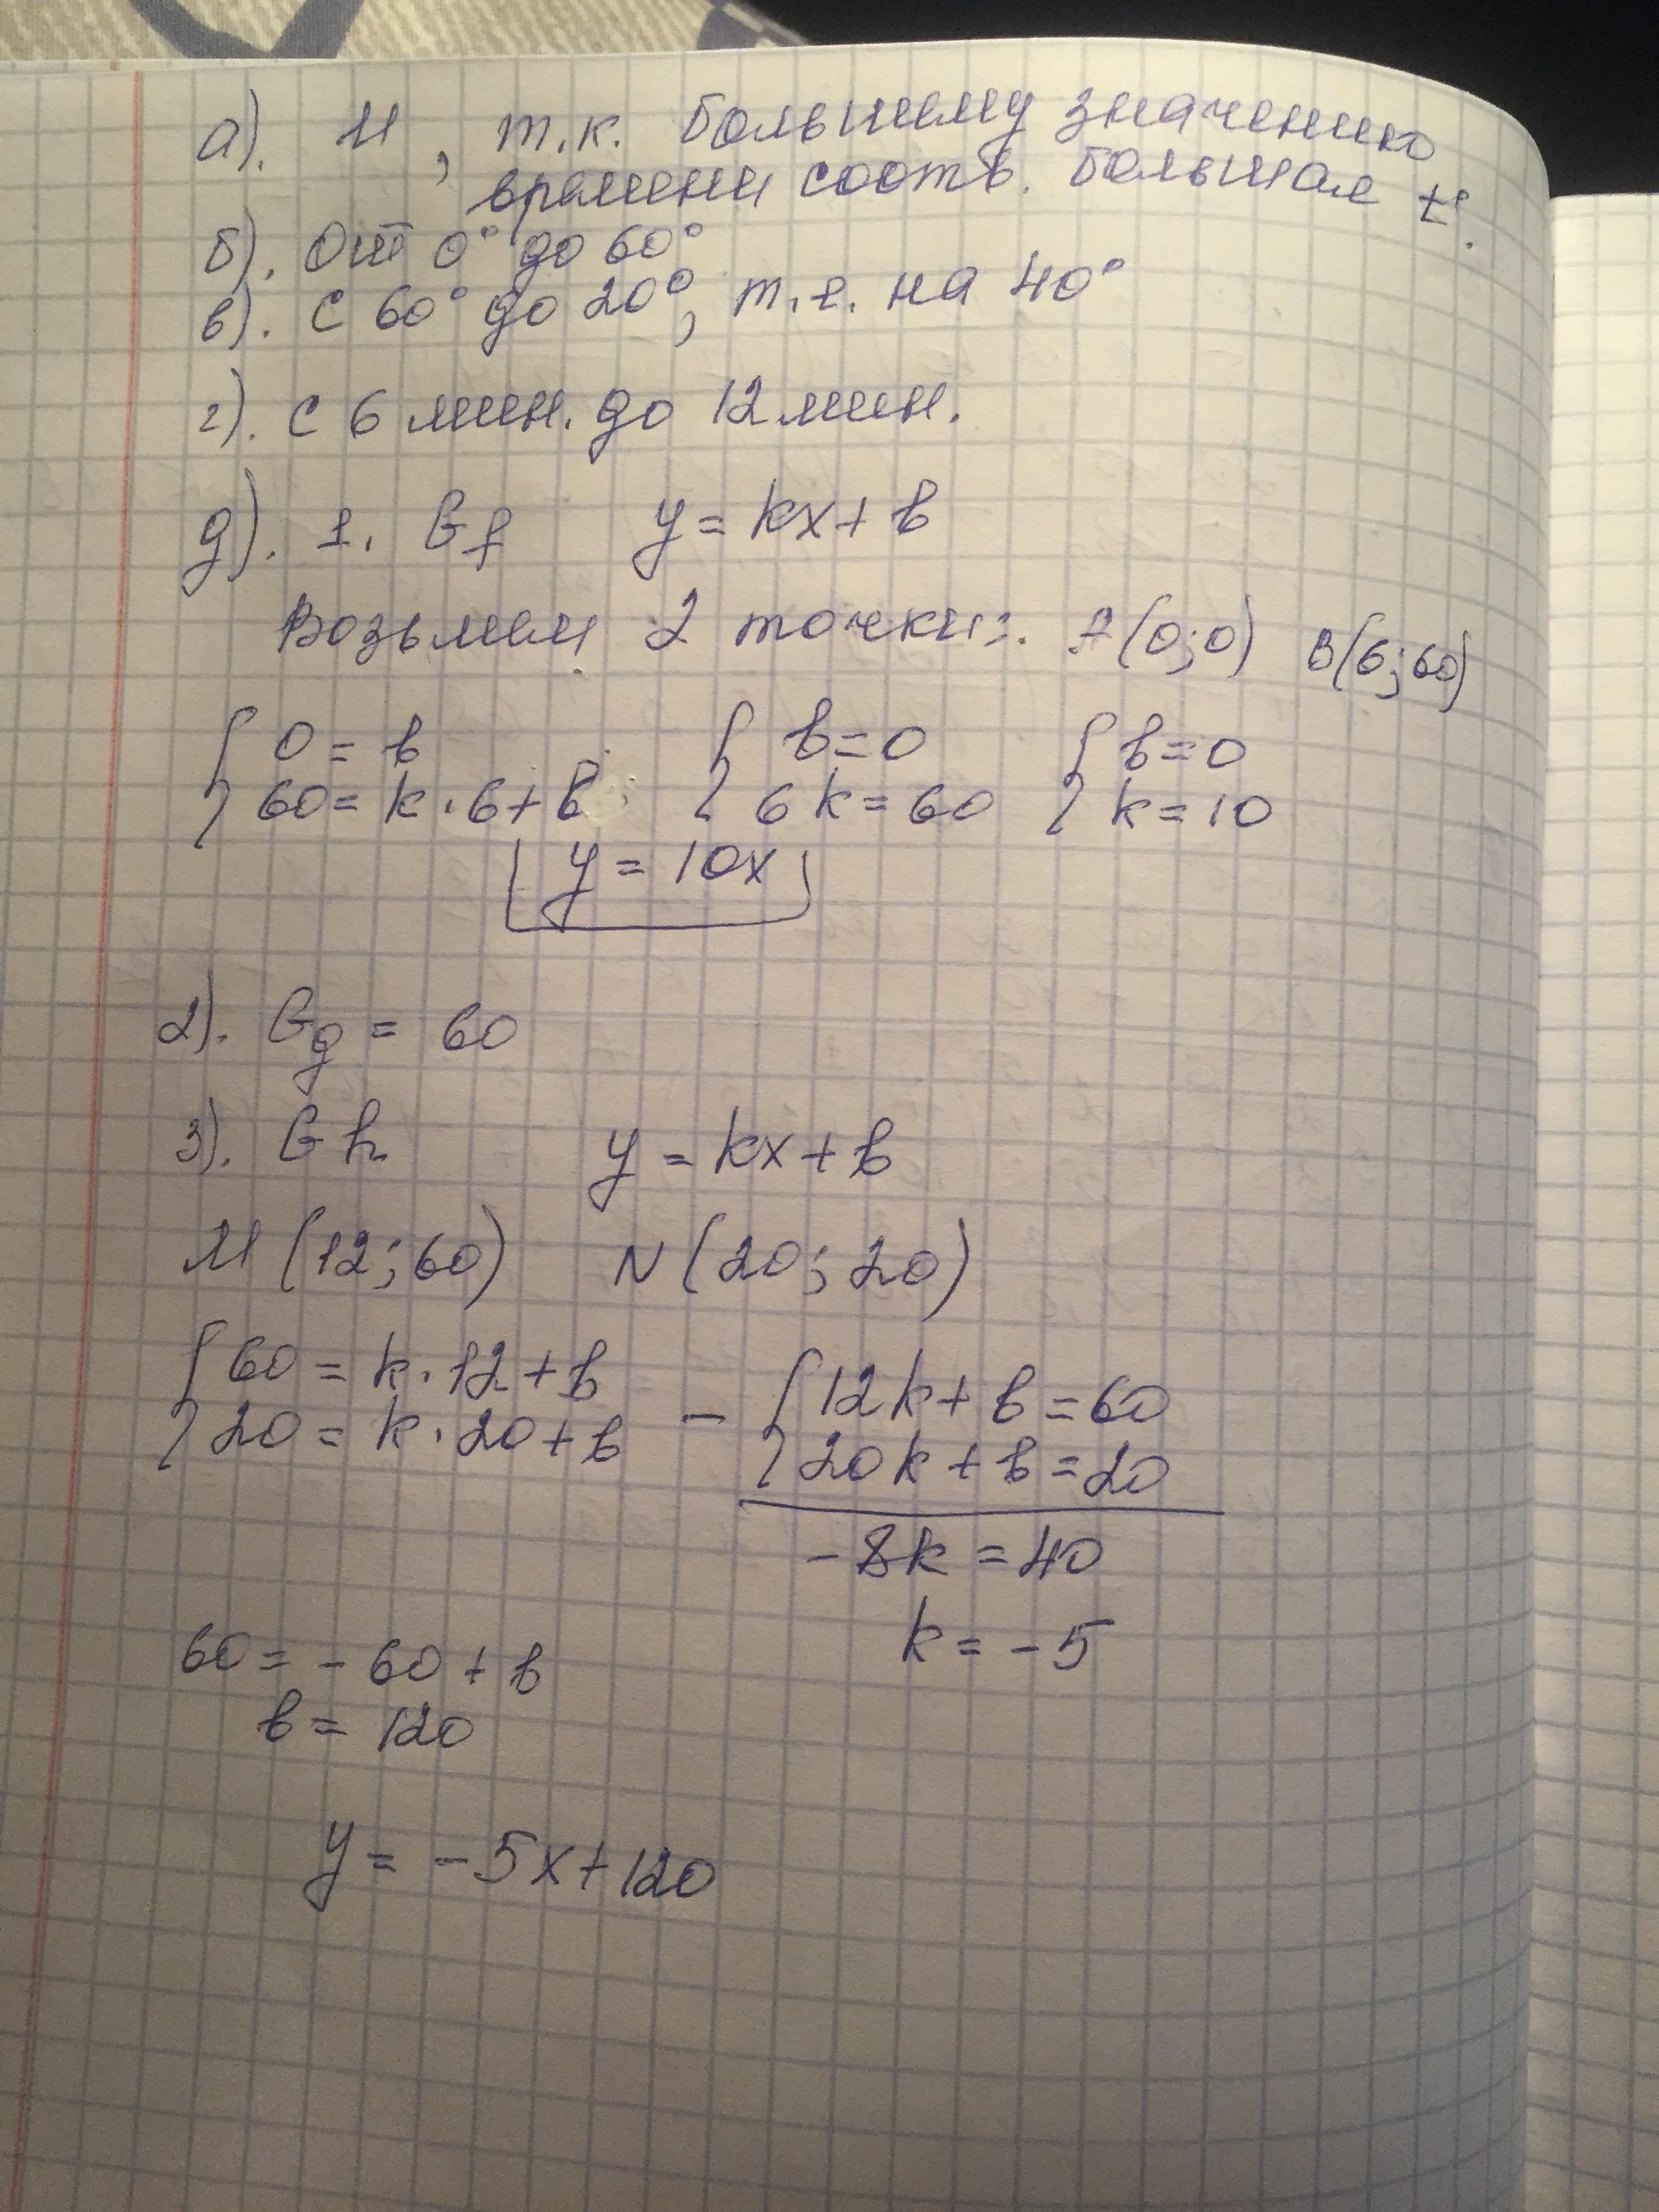 а). И, т.к. большему значению
времени соотв. большая t°.
б). От 0° до 60°
в). С 60° до 20°, т.е. на 40°
г). С 6 мин. до 12 мин.
д). 1. Gf y = kx + b
Возьмем 2 точки: A(0;0) B(6;60)
{ 0 = b { b = 0 { b = 0
{ 60 = k · 6 + b { 6k = 60 { k = 10
y = 10x
2). Gg = 60
3). Gh y = kx + b
M (12; 60) N (20; 20)
{ 60 = k · 12 + b - { 12k + b = 60
{ 20 = k · 20 + b { 20k + b = 20
-8k = 40
k = -5
60 = -60 + b
b = 120
y = -5x + 120